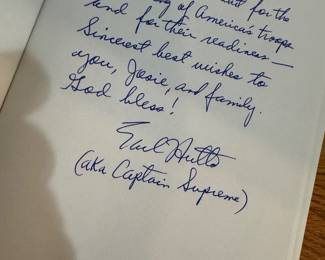 of America's troops
and for their readiness—
Sincerest best wishes to
you, Josie, and family.
God bless!
Earl Hutto
(aka Captain Supreme)